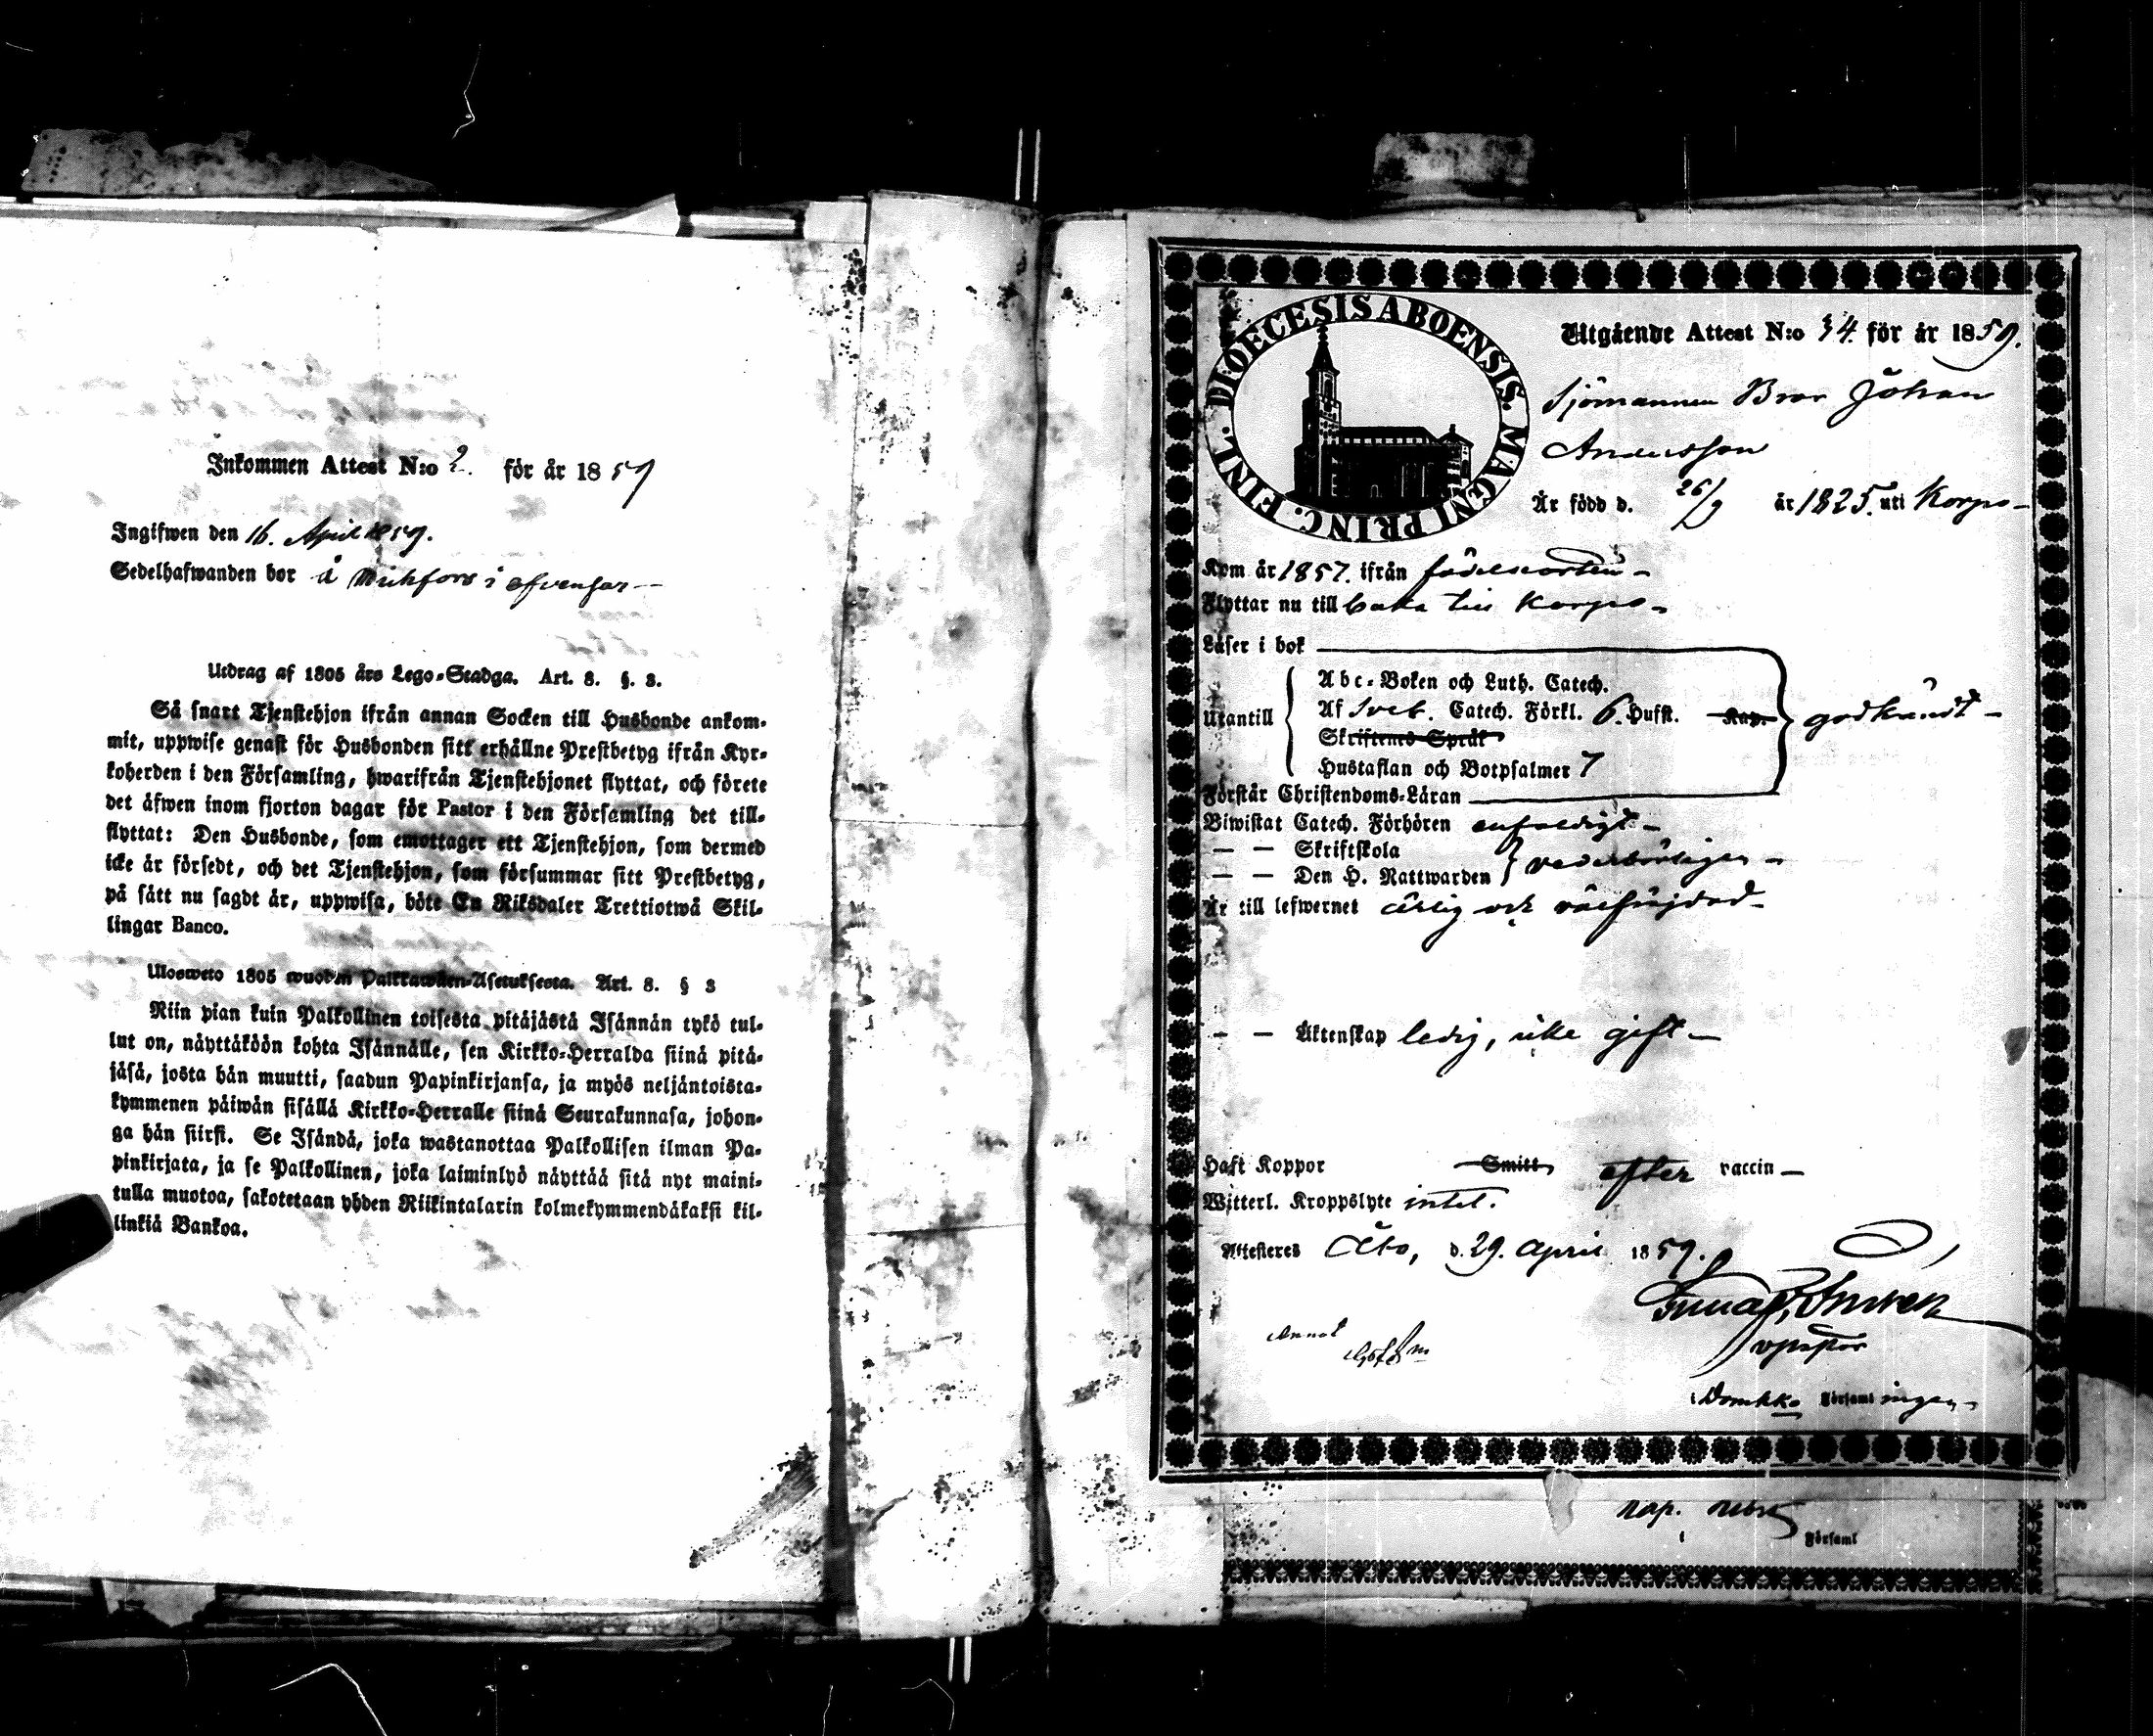 Inkommen Attest N:o 2. för år 1859
Ingifwen den 16. April 1859.
Sedelhafwanden bor å i
Utdrag af 1805 års Lego-Stadga. Art. 8. §. 3.
Så snart Tjenstehjon ifrån annan Socken till Husbonde ankom-
mit, uppwise genast för Husbonden sitt erhållne Prestbetyg ifrån Kyr-
koherden i den Församling, hwarifrån Tjenstehjonet flyttat, och förete
det äfwen inom fjorton dagar för Pastor i den Församling det till-
flyttat: Den Husbonde, som emottager ett Tjenstehjon, som dermed
icke är försedt, och det Tjenstehjon, som försummar sitt Prestbetyg,
på sätt nu sagdt är, uppwisa, böte En Riksdaler Trettiotwå Skil-
lingar Banco.
Ulosweto 1805 wuoden Palkkawäen-Asetuksesta. Art. 8. § 3
Niin pian kuin Palkollinen toisesta pitäjästä Isännän tykö tul-
lut on, näyttäköön kohta Isännälle, sen Kirkko-Herralda siinä pitä-
jäsä, josta hän muutti, saadun Papinkirjansa, ja myös neljäntoista-
kymmenen päiwän sisällä Kirkko-Herralle siinä Seurakunnasa, johon-
ga hän siirsi. Se Isändä, joka wastanottaa Palkollisen ilman Pa-
pinkirjata, ja se Palkollinen, joka laiminlyö näyttää sitä nyt maini-
tulla muotoa, sakotetaan yhden Riikintalarin kolmekymmendäkaksi kil-
linkiä Bankoa.
DIOECESIS ABOENSIS. MAGNI PRINC. FINL.
Utgående Attest N:o 34. för år 1859.
Sjömannen Bror Johan
Andersson
Är född d. 26/9 år 1825. uti Korpo
Kom år 1857. ifrån födelseorten
Flyttar nu till baka till Korpo
Läser i bok
Utantill
Abc-Boken och Luth. Catech.
Af Sveb. Catech. Förkl. 6. Hufst. Kap. godkändt
Skriftenes Språk
Hustaflan och Botpsalmer 7
Förstår Christendoms-Läran
Biwistat Catech. Förhören enfaldigt
— — Skriftskola
— — Den H. Nattwarden vederbörligen
Är till lefwernet ärlig och välfrejdad
— — Äktenskap ledig, icke gift
Haft Koppor Smitt efter vaccin
Witterl. Kroppslyte intet.
Attesteres Åbo, d. 29. April 1859.
Domkko Församlingen
Församl